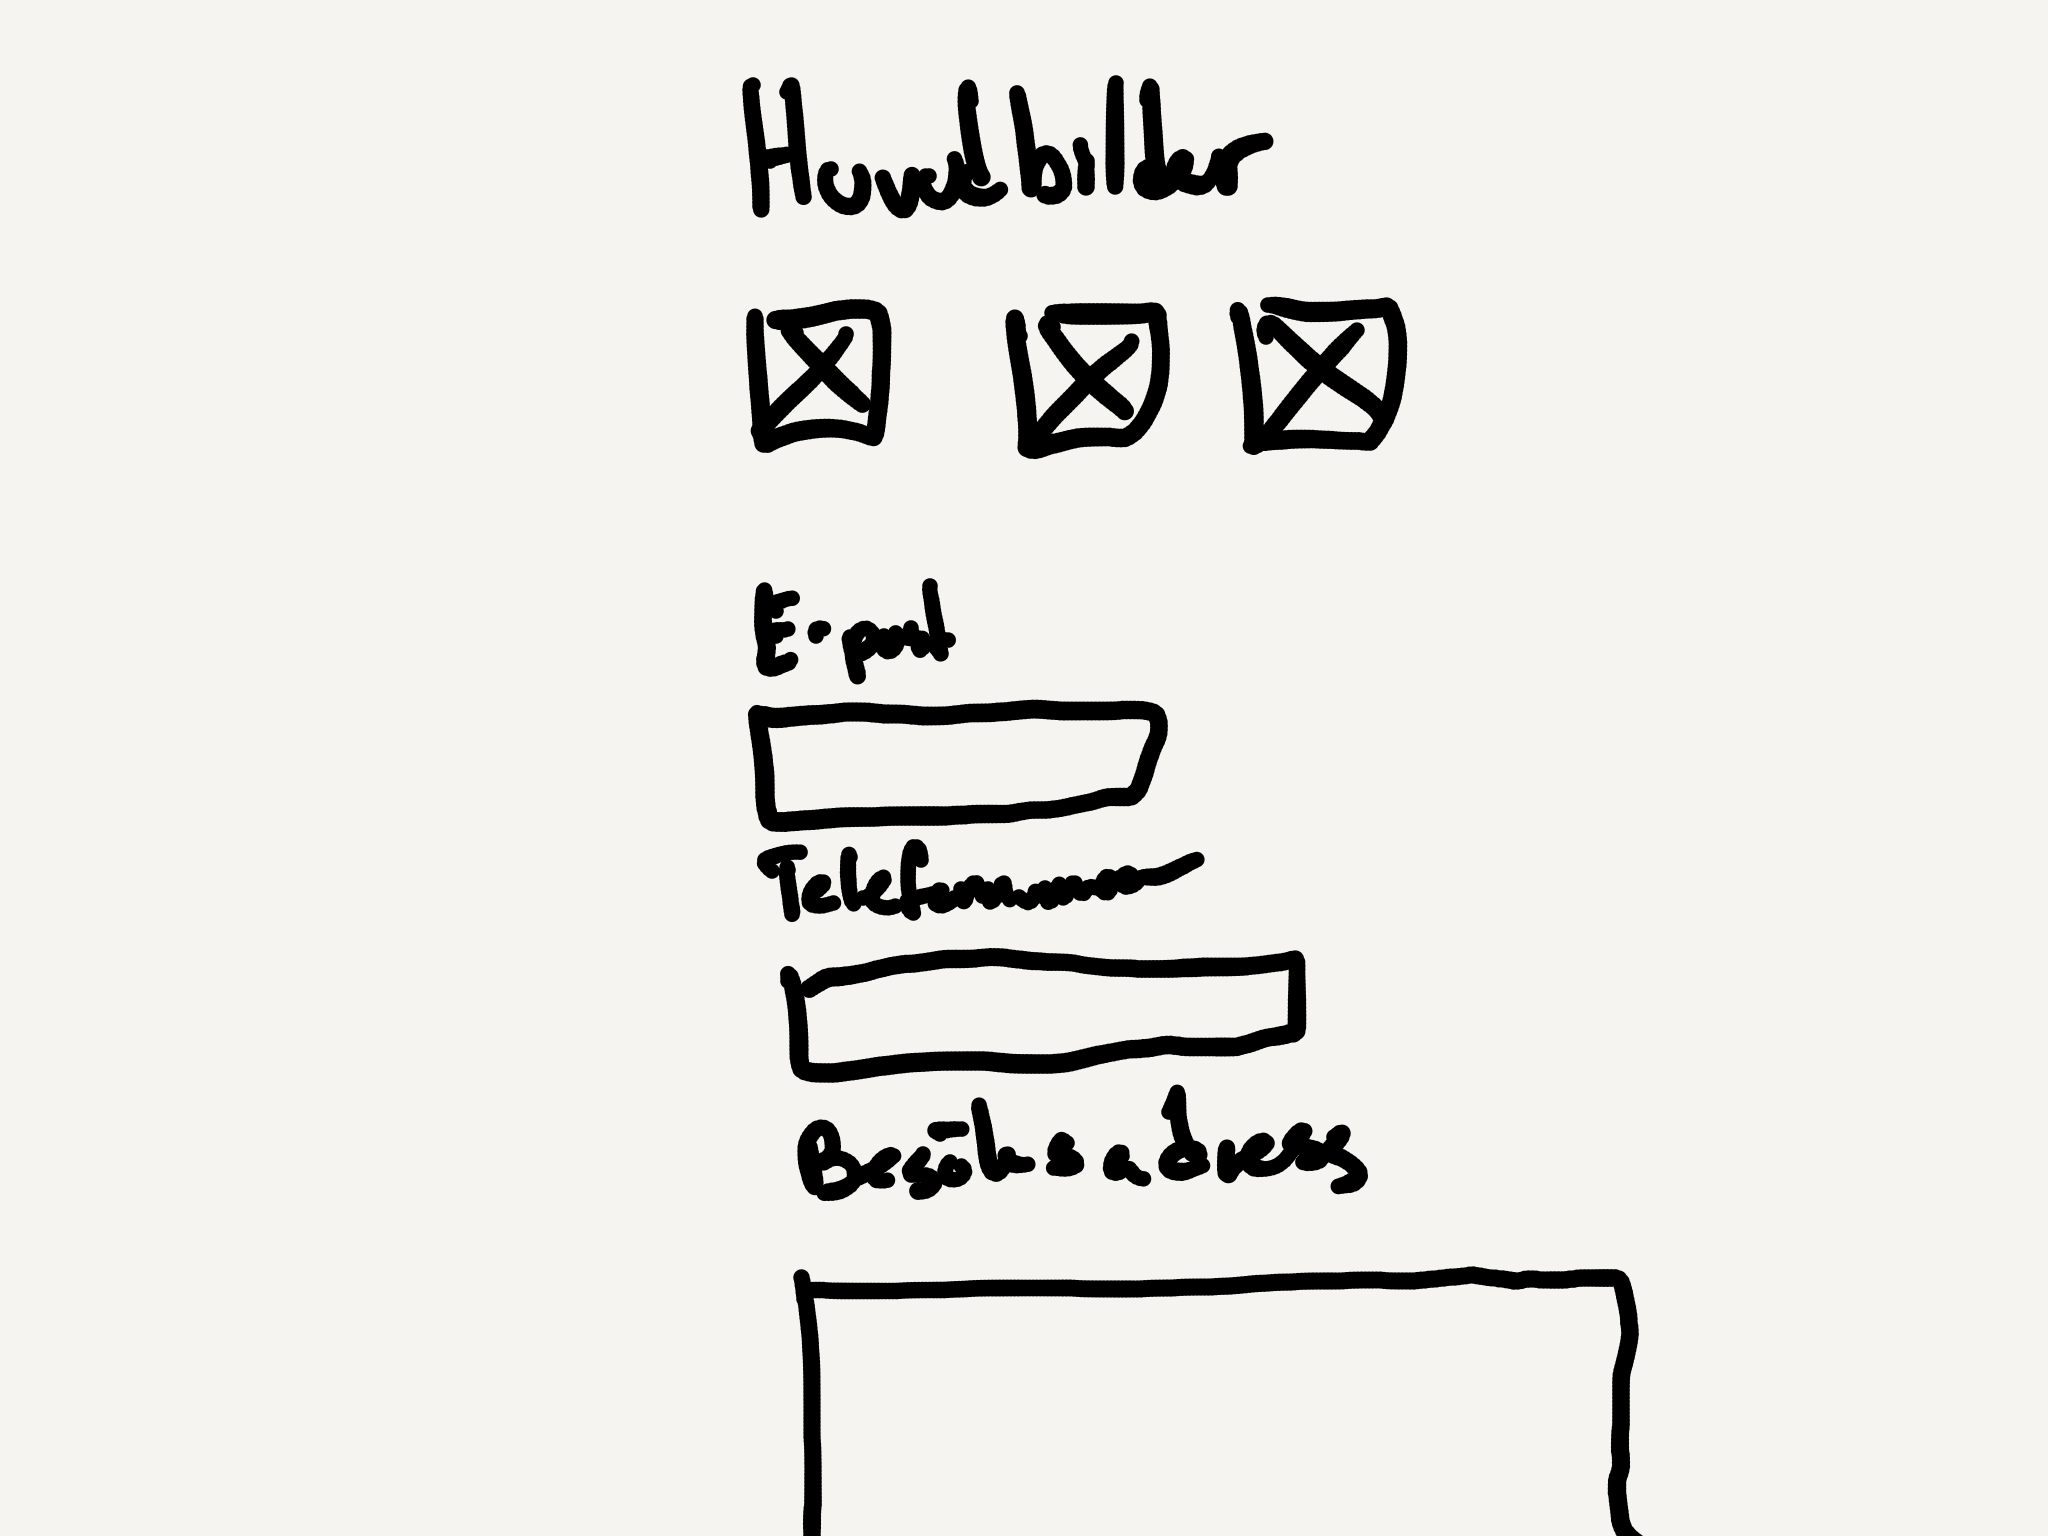 Huvudbilder
E-post
Telefonnummer
Besöksadress